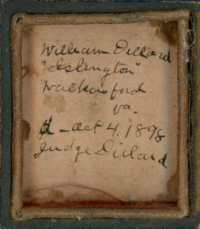 William Dillard
"Eslington"
Walkerford
Va.
d - Oct 4, 1898
Judge Dillard